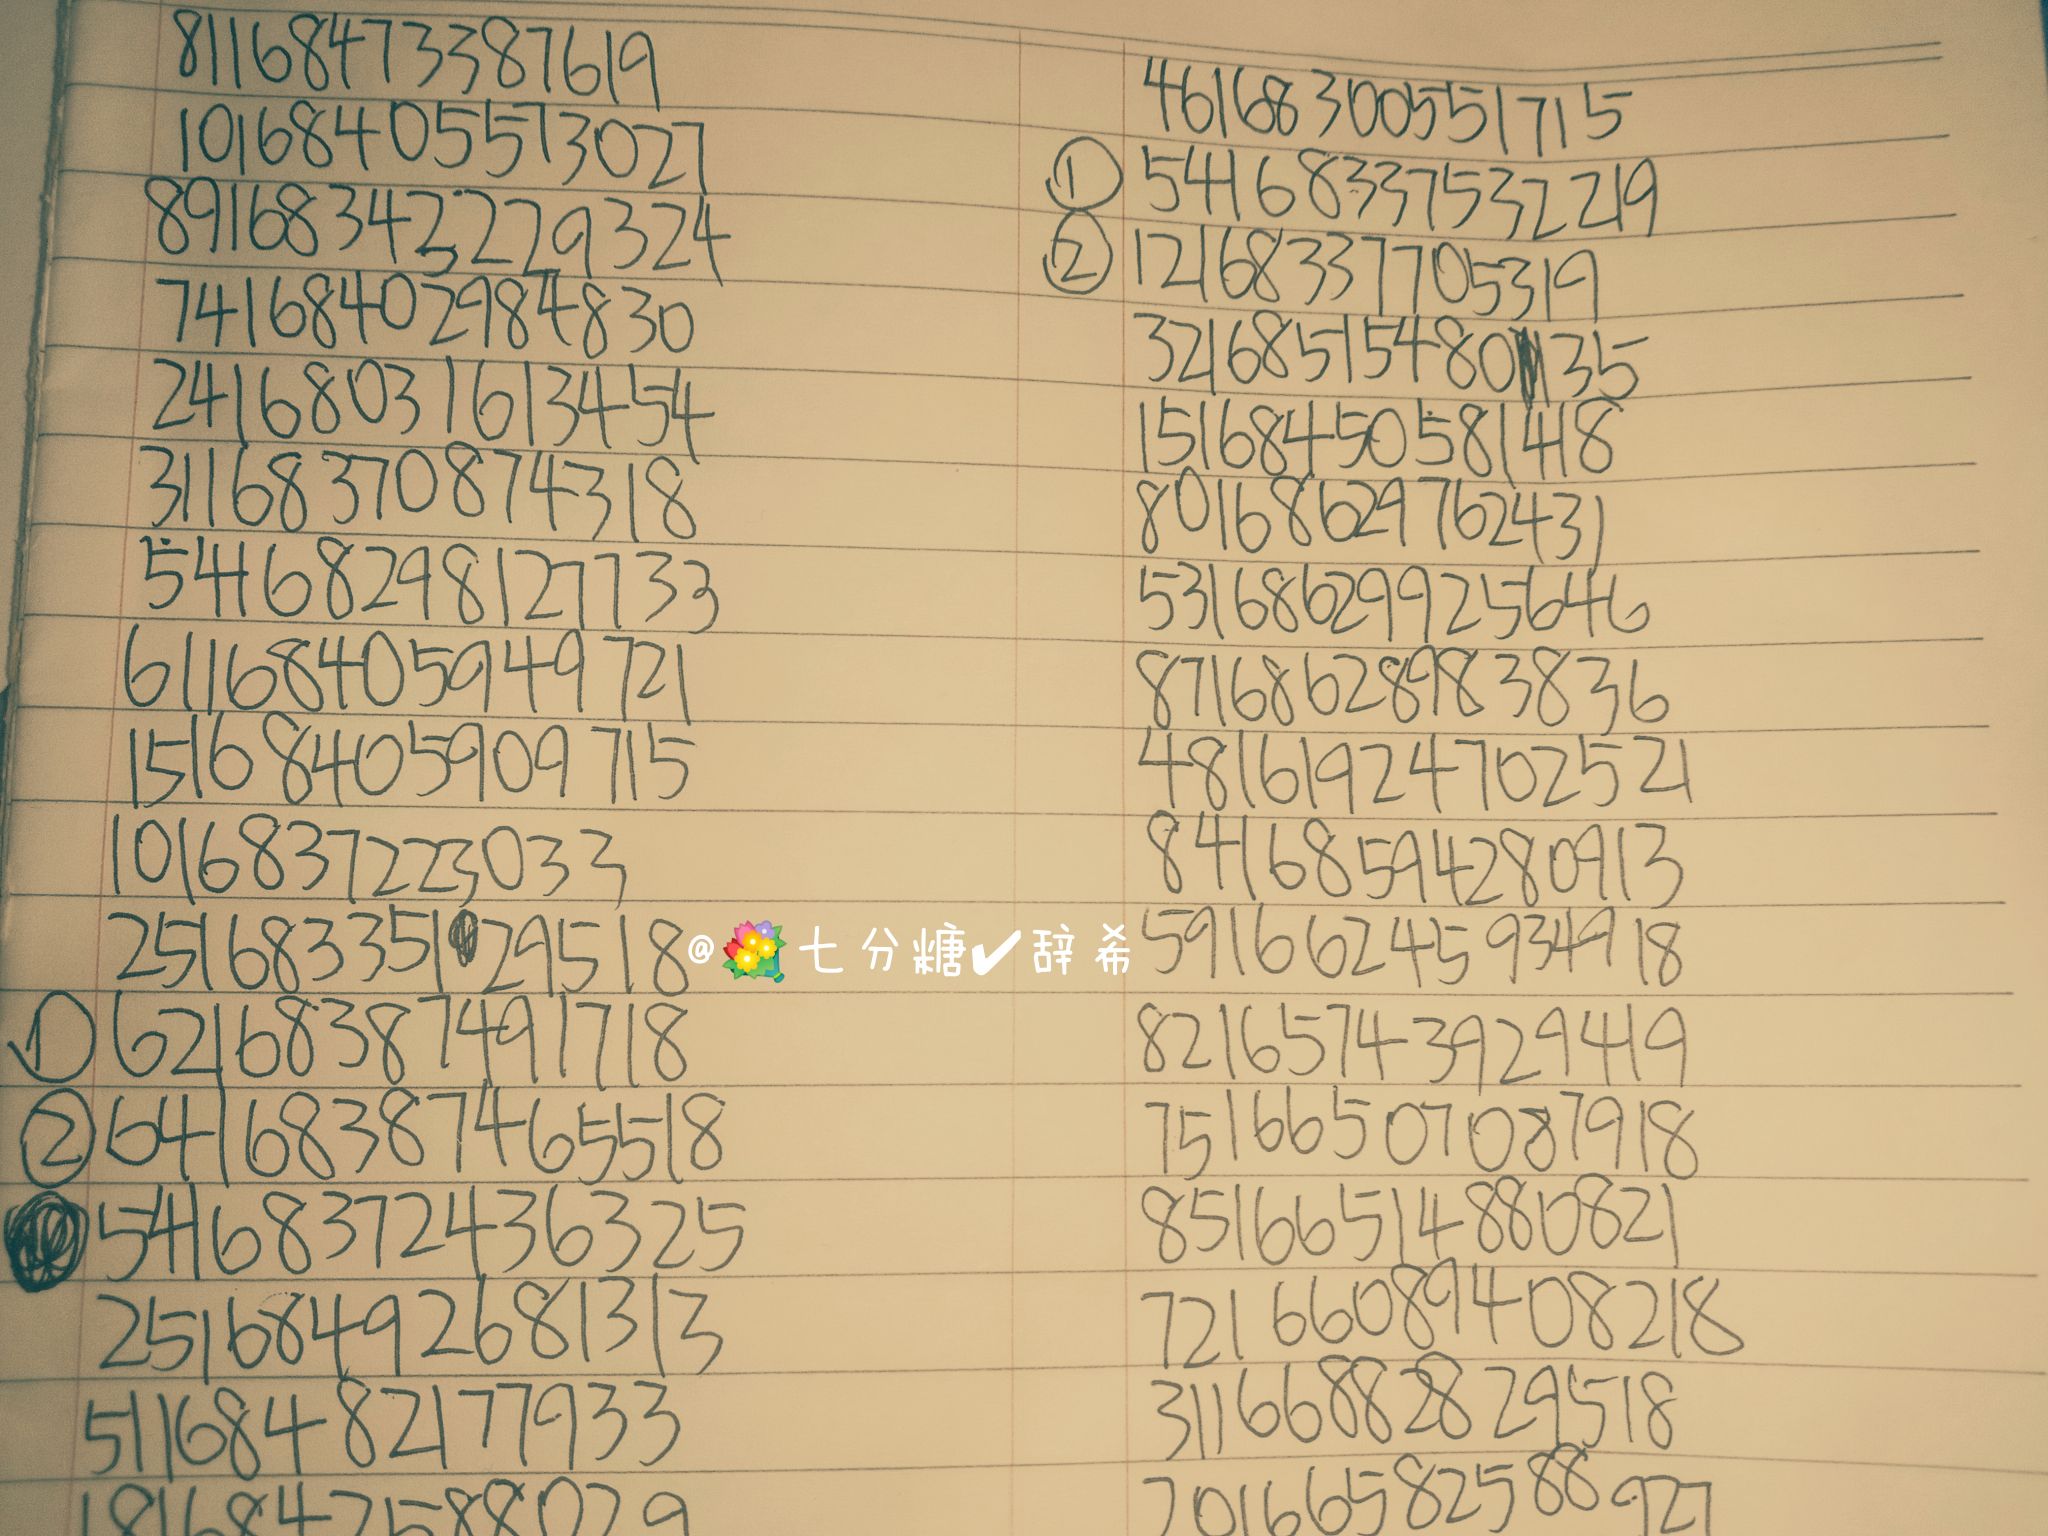 81168473387619
101684055573027
89168342229324
74168402984830
24168037613454
31168370874318
54168298127733
61168405949721
15168405909715
10168372230 33
25168335129518
① 62168387491718
② 64168387465518
54168372436325
25168492681313
51168482177933
@七分糖✔辞希
46168300551715
① 54168337532219
② 12168337705319
3216851548035
15168450581418
80168629762431
53168629925646
87168628983836
48161924702521
84168594280913
59166245934918
82165743929419
75166507087918
85166514880821
72166089408218
31166882829518